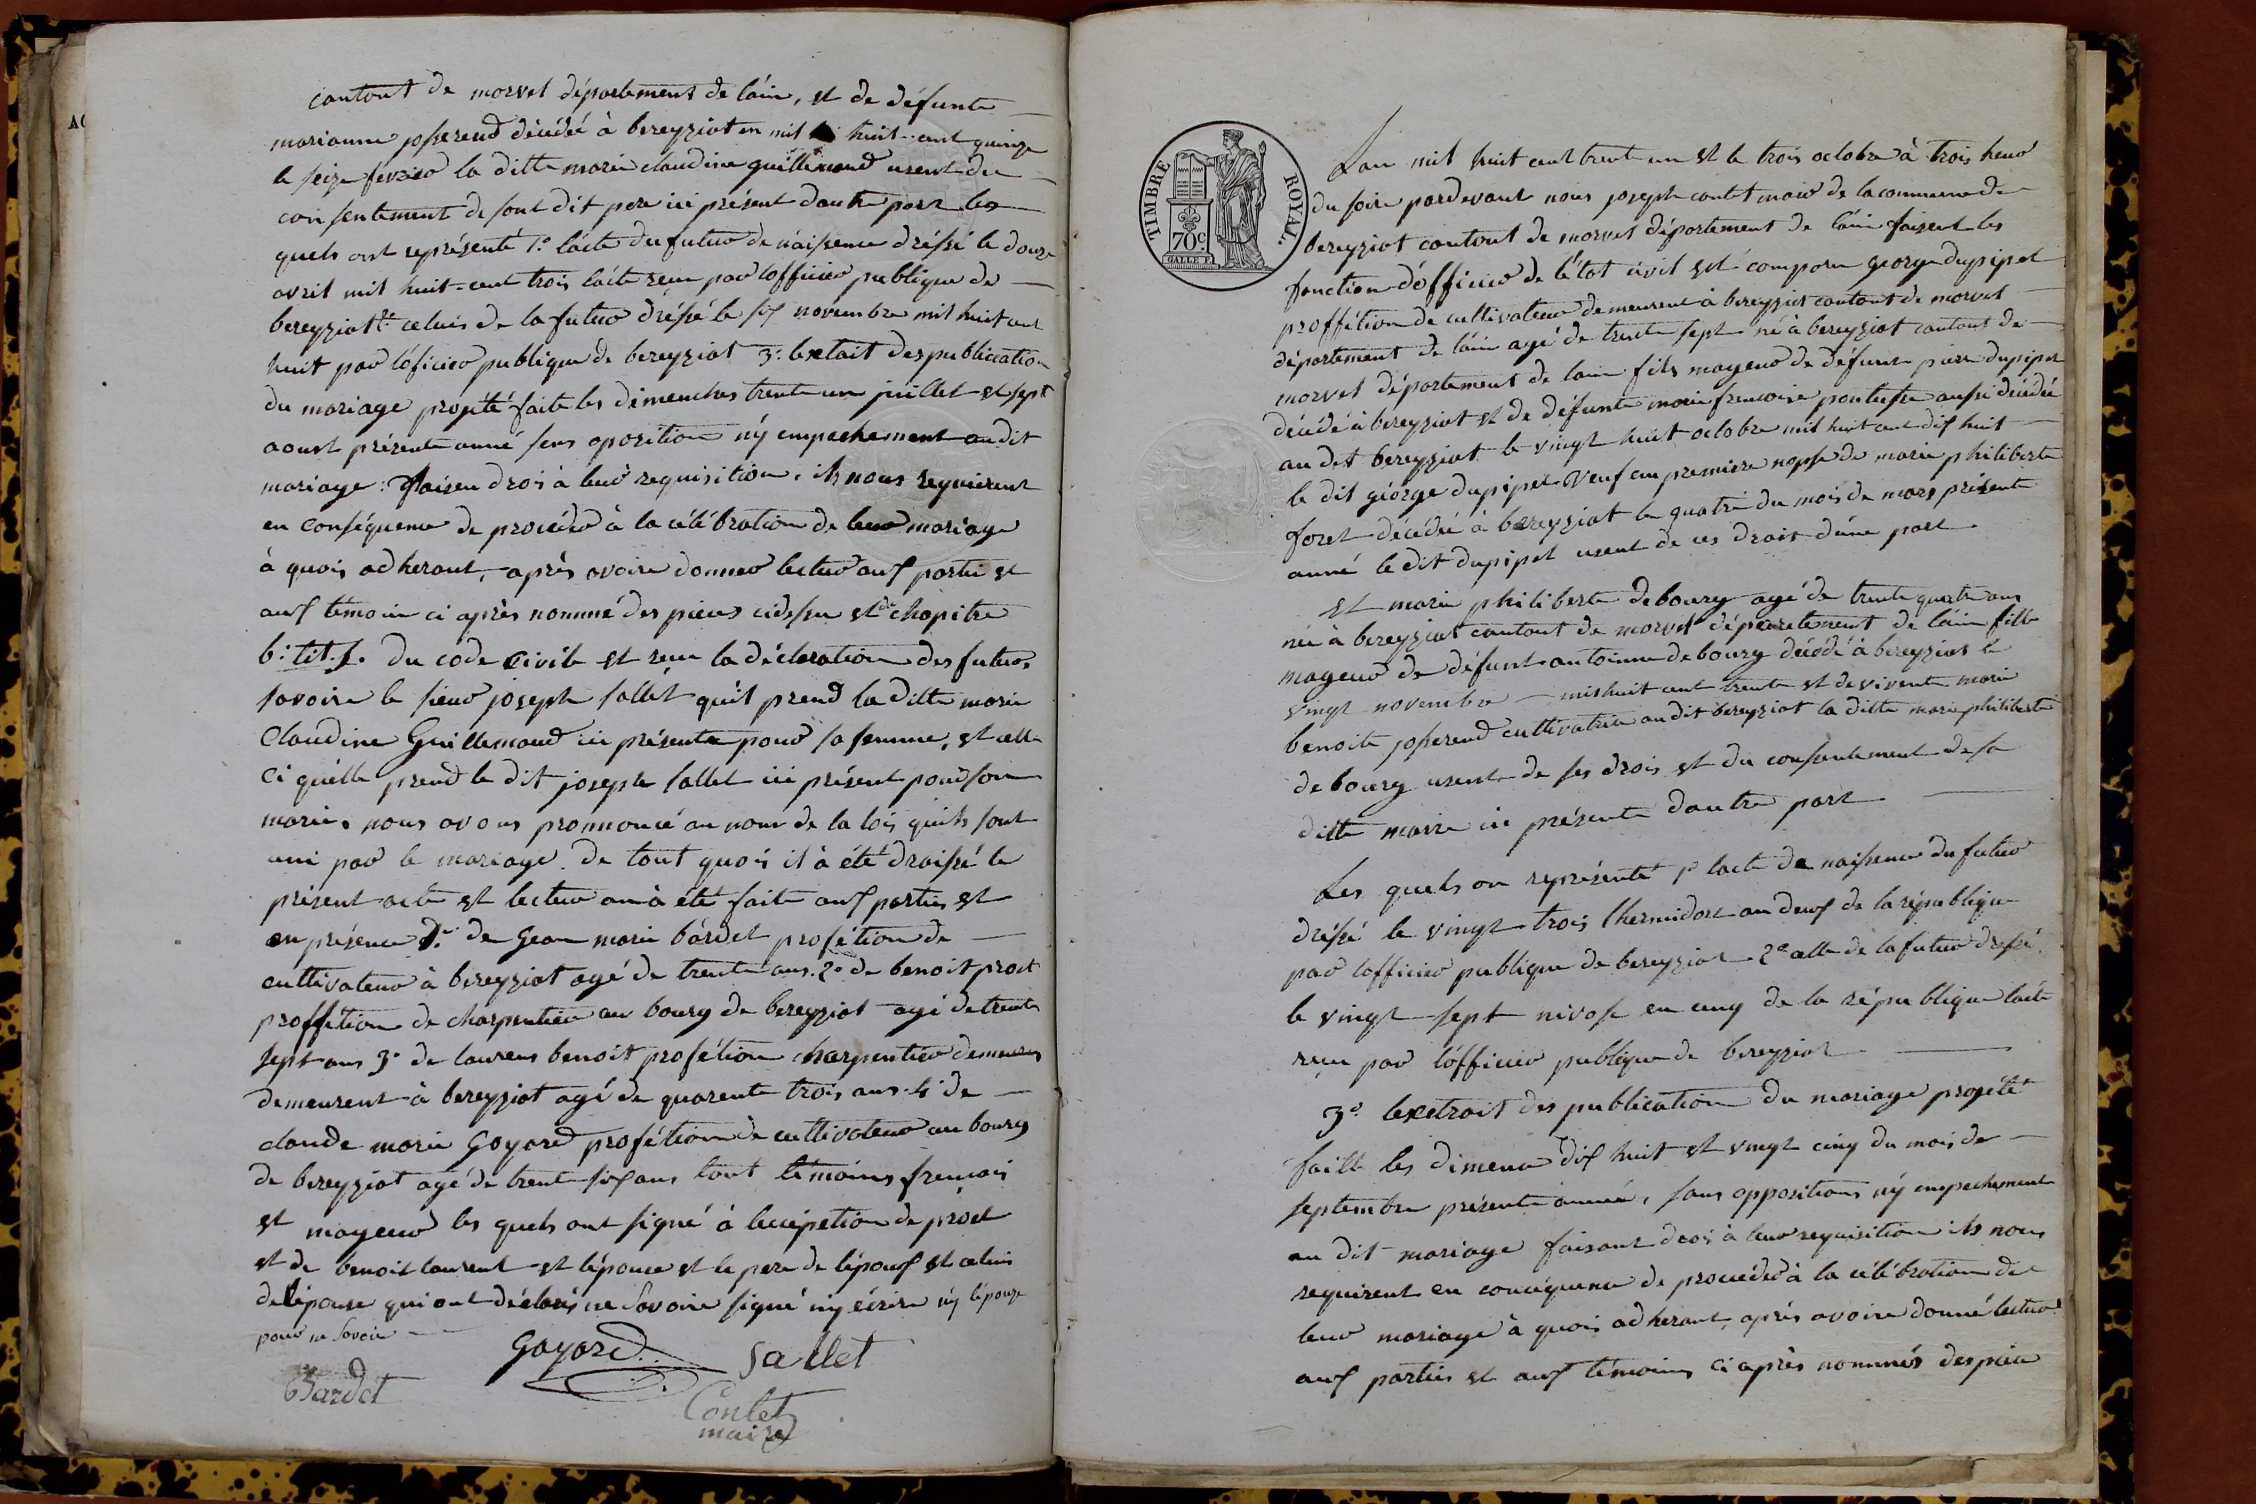 cantont de morvel département de láin, et de défunte
marianne josserend décédée à bereyziat en mil huit-cent quinze
le seize fevrier la ditte marie claudine guillemaud usent du
consentement de sont dit pere ici présent dautre part les
quels ont représenté 1.º lácte du futur de náissence dréssé le douze
avril mil huit-cent trois lácte reçu par lofficier publique de
bereyziat 2.º celuis de la futur dréssé le six novembre mil huit cent
huit par lóficier publique de bereyziat 3.º lextait des publiccation
du mariage projété faite les dimenches trente un juillet et sept
aoust présente anné sens oposition ný empechement audit
mariage. faisen drois à leur requisition. ils nous requierent
en conséquence de proceder à la célébration de leur mariage
à quois adherant, après avoire donner lecture aux partie et
aux témoin ci après nommé des pieces cidessu et du chapitre
6.º tit. 5. du code civile et reçu la décleration des futur,
savoire le sieur joseph sallet qu'il prend la ditte marie
Claudine Guillemaud ici présente pour sa femme, et celle
ci quélle prend le dit joseph sallet ici présent pour son
marie, nous avons pronnoncé au nom de la lois quils sont
uni par le mariage. de tout quois il à été draissé le
présent acte et lecture en à été faite aux parties et
en présence 1.º de Jean marie bárdet profétion de
cultivateur à bereyziat agé de trente ans. 2.º de benoit prost
proffétion de charpentier au bourg de bereyziat agé de trente
sept ans 3.º de laurens benoit profétion charpentier demeures
demeurent à bereyziat agé de quarente trois ans. 4.º de
claude marie Goyard profétion de cultivateur au bourg
de bereyziat agé de trente six ans tout témoins frencais
et mageur les quels ont signé à lecepetion de prost
et de benoit laurent et lépouce et le pere de lépoux et celuis
de lépouse qui ont déclaré ne savoire signé ný écrire ný lépouze
pour ne savoir
Goyard
Sallet
Bardet
Contet
maire
TIMBRE ROYAL.
70 c.
Lan mil huit cent trente un et le trois octobre à trois heur
du soire pardevant nous joseph contet maire de la commune de
bereyziat cantont de morvel département de láin faisent les
fonction dófficier de létat civil est comparu george dupipet
proffétion de cultivateur demeurent à bereyziat cantont de morvel
département de láin agé de trente sept né à bereyziat cantont de
morvel département de lain fils mageur de défunt piere dupipet
décédé à bereyziat et de défunte marie francoise pontusse aussi décédée
au dit bereyziat le vingt huit octobre mil huit cent dix huit
le dit géorge dupipet veuf en premiere nopse de marie philiberte
foret décédée à bereyziat le quatre du mois de mars présente
anné le dit dupipet usent de ces drois dúne part
et marie philiberte debourg agé de trente quatre ans
née à bereyziat cantont de morvel département de láin fille
mageur de défunt antoinne debourg décédé à bereyziat le
vingt novembre mil huit cent trente et de vivente marie
benoite josserend cultivatrice au dit bereyziat la ditte marie philiberte
debourg usent de ses drois et du consentement de sa
ditte marre ici présente dautre part
Les quels on représenté 1.º lacte de naissence du futur
dréssé le vingt trois thermidor an deux de la république
par lofficier publique de bereyziat 2.º celle de la futur dressé
le vingt sept nivose en cinq de la république lácte
reçu par lófficier publique de bereyziat
3.º lexetrait des publication du mariage projété
faitte les dimence dix huit et vingt cinq du mois de
septembre présente année, sans opposition ný empechement
au dit mariage faisant drois à leur requisition ils nous
requirent en concéquence de proceder à la célébration de
leur mariage à quois adherant, après avoire donné lectur
aux parties et aux témoins ci après nommés des piece